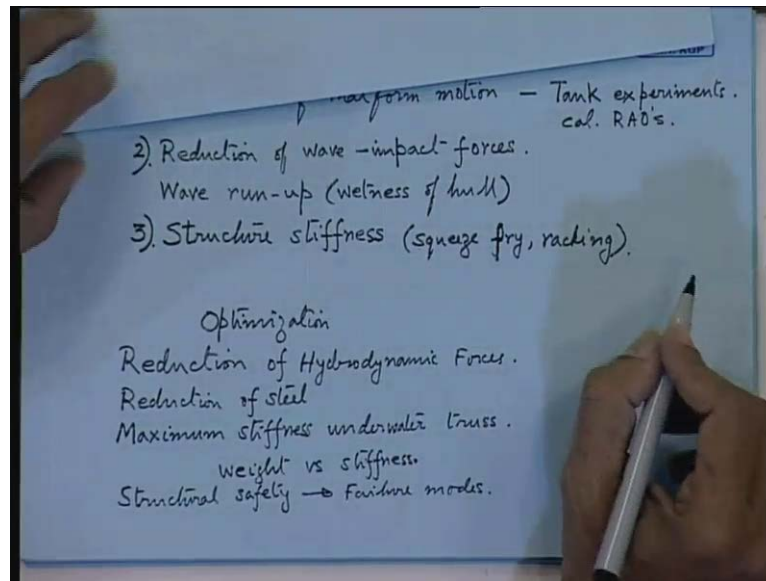 motion — Tank experiments.
cal. RAO's.
2). Reduction of wave-impact forces.
Wave run-up (wetness of hull)
3). Structure stiffness (squeeze pry, racking).
Optimization
Reduction of Hydrodynamic Forces.
Reduction of steel
Maximum stiffness underwater truss.
weight vs stiffness.
Structural safety → Failure modes.